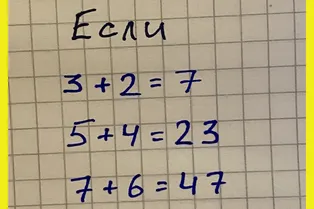 Если
3+2=7
5+4=23
7+6=47